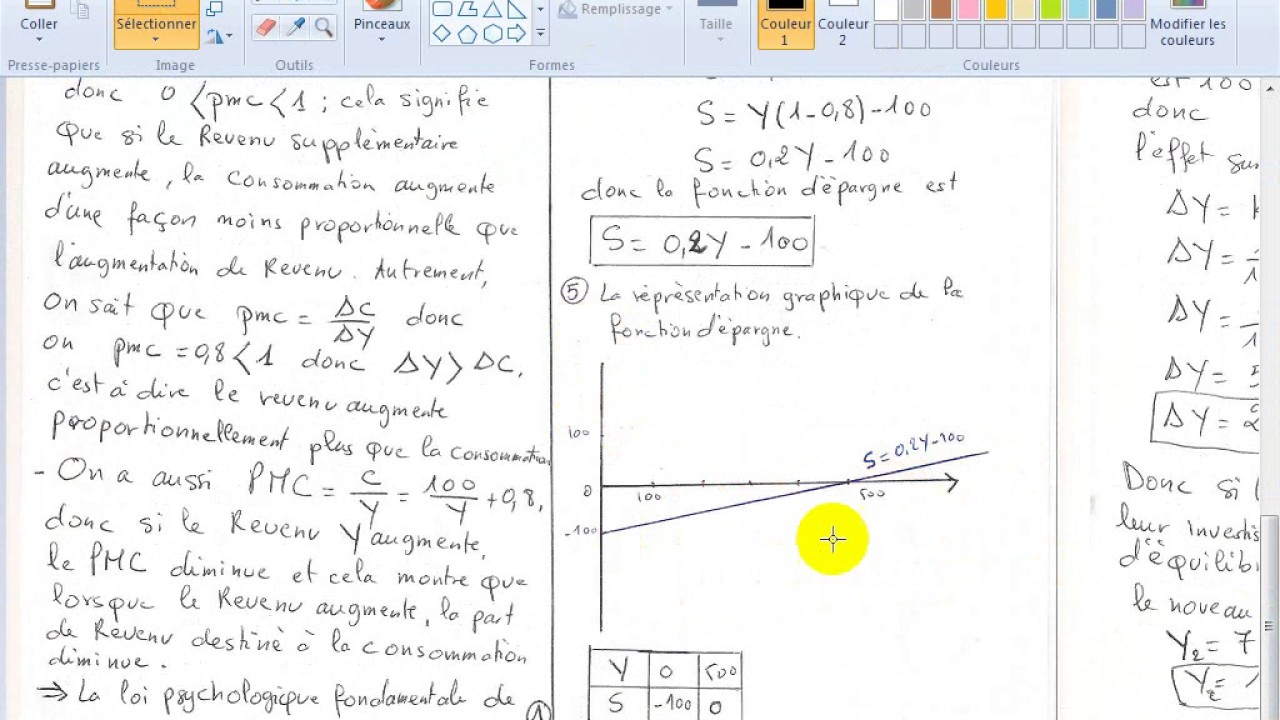 Coller
Sélectionner
Pinceaux
Remplissage
Taille
Couleur 1
Couleur 2
Modifier les couleurs
Presse-papiers
Image
Outils
Formes
Couleurs
donc 0 < pmc < 1 ; cela signifie
que si le Revenu supplémentaire
augmente, la consommation augmente
d'une façon moins proportionnelle que
l'augmentation de Revenu. Autrement,
On sait que pmc = ΔC/ΔY donc
on pmc = 0,8 < 1 donc ΔY > ΔC,
c'est à dire le revenu augmente
proportionnellement plus que la consommation
- On a aussi PMC = C/Y = 100/Y + 0,8,
donc si le Revenu Y augmente,
le PMC diminue et cela montre que
lorsque le Revenu augmente, la part
de Revenu destiné à la consommation
diminue.
⇒ La loi psychologique fondamentale de
S = Y(1-0,8)-100
S = 0,2Y-100
donc la fonction d'épargne est
S = 0,2Y - 100
⑤ La réprèsentation graphique de la
fonction d'épargne.
100
S=0,2Y-100
0
100
500
-100
Y 0 500
S -100 0
est 100
donc
l'éffet
ΔY =
ΔY =
ΔY =
ΔY =
ΔY =
Donc si
leur
d'équilib
le noveau
Y₂ = 7
Y₂ =